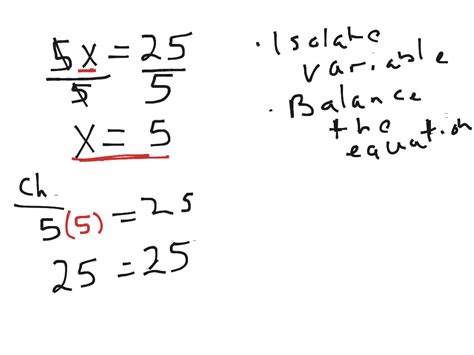 5x = 25
5 5
x = 5
Ch.
5(5) = 25
25 = 25
• Isolate
variable
• Balance
the
equation